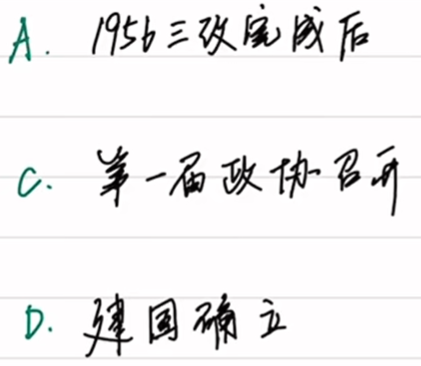 A. 1956三改完成后
C. 第一届政协召开
D. 建国确立